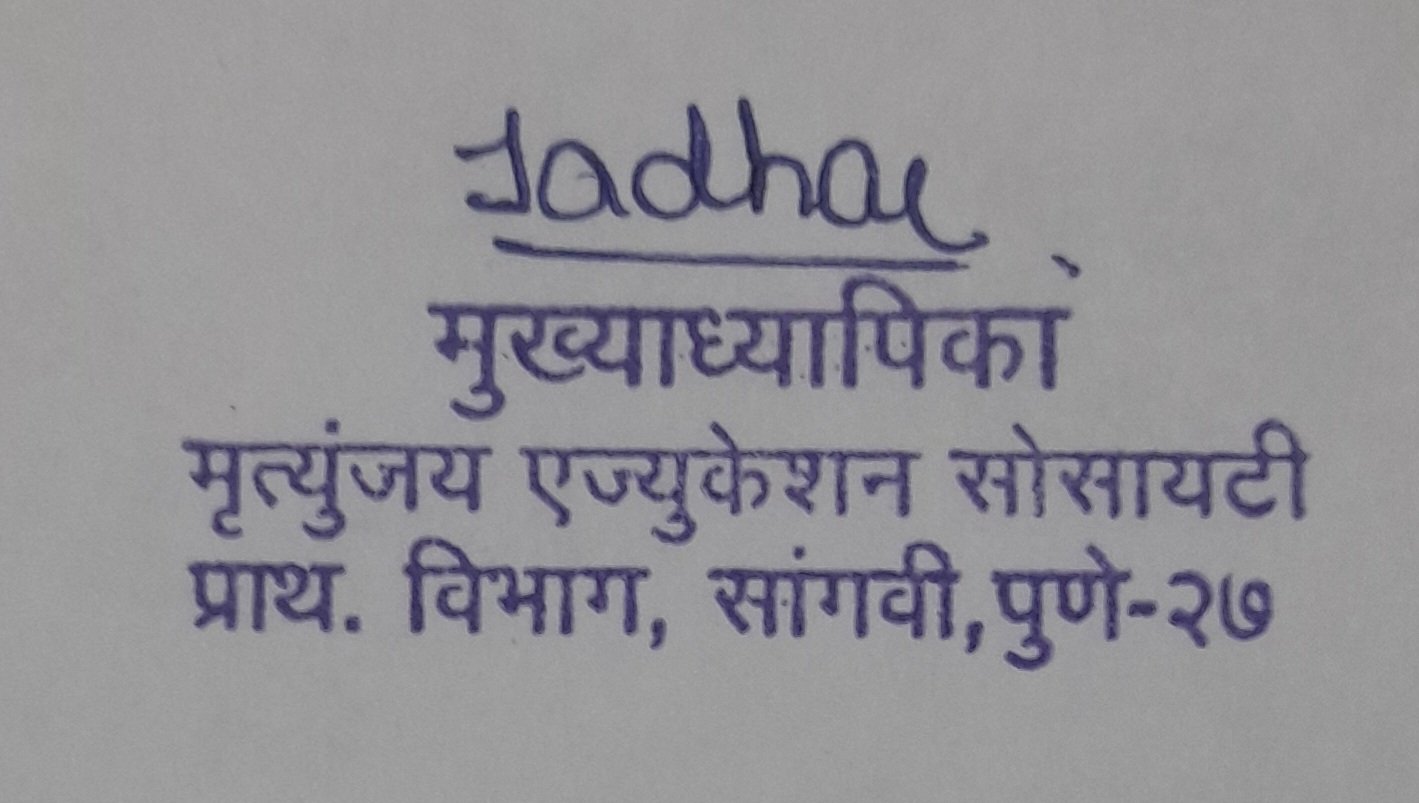 Jadhav
मुख्याध्यापिका
मृत्युंजय एज्युकेशन सोसायटी
प्राथ. विभाग, सांगवी, पुणे-२७